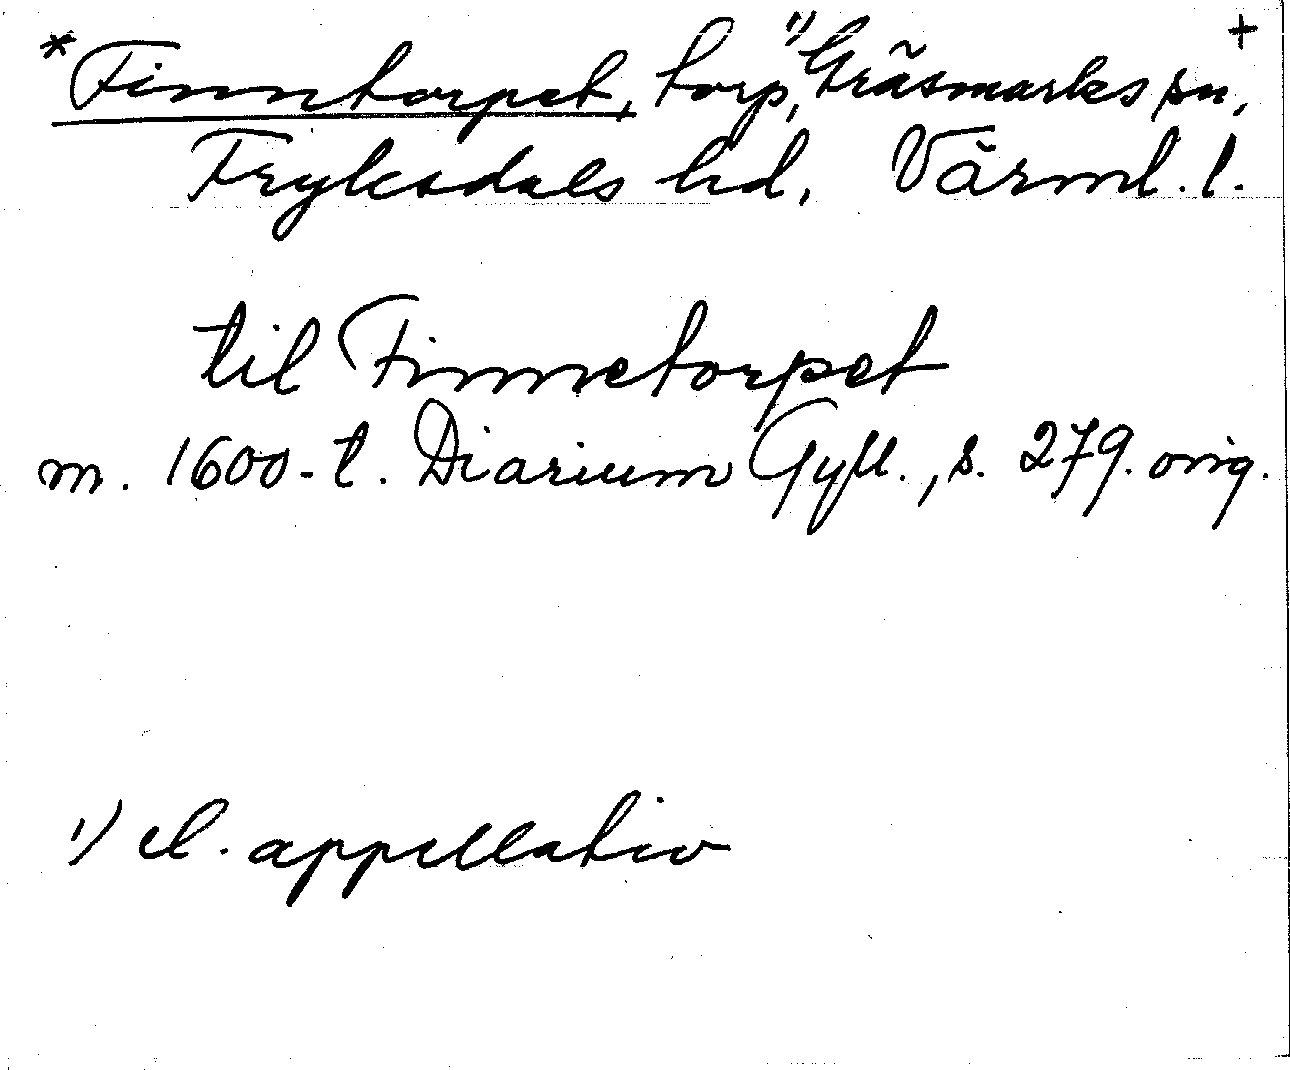 *Finntorpet, torp,¹⁾ Gräsmarks sn, +
Fryksdals hd, Värml. l.
til Finnetorpet
m. 1600-t. Diarium Gyll., s. 279. orig.
¹⁾ el. appellativ